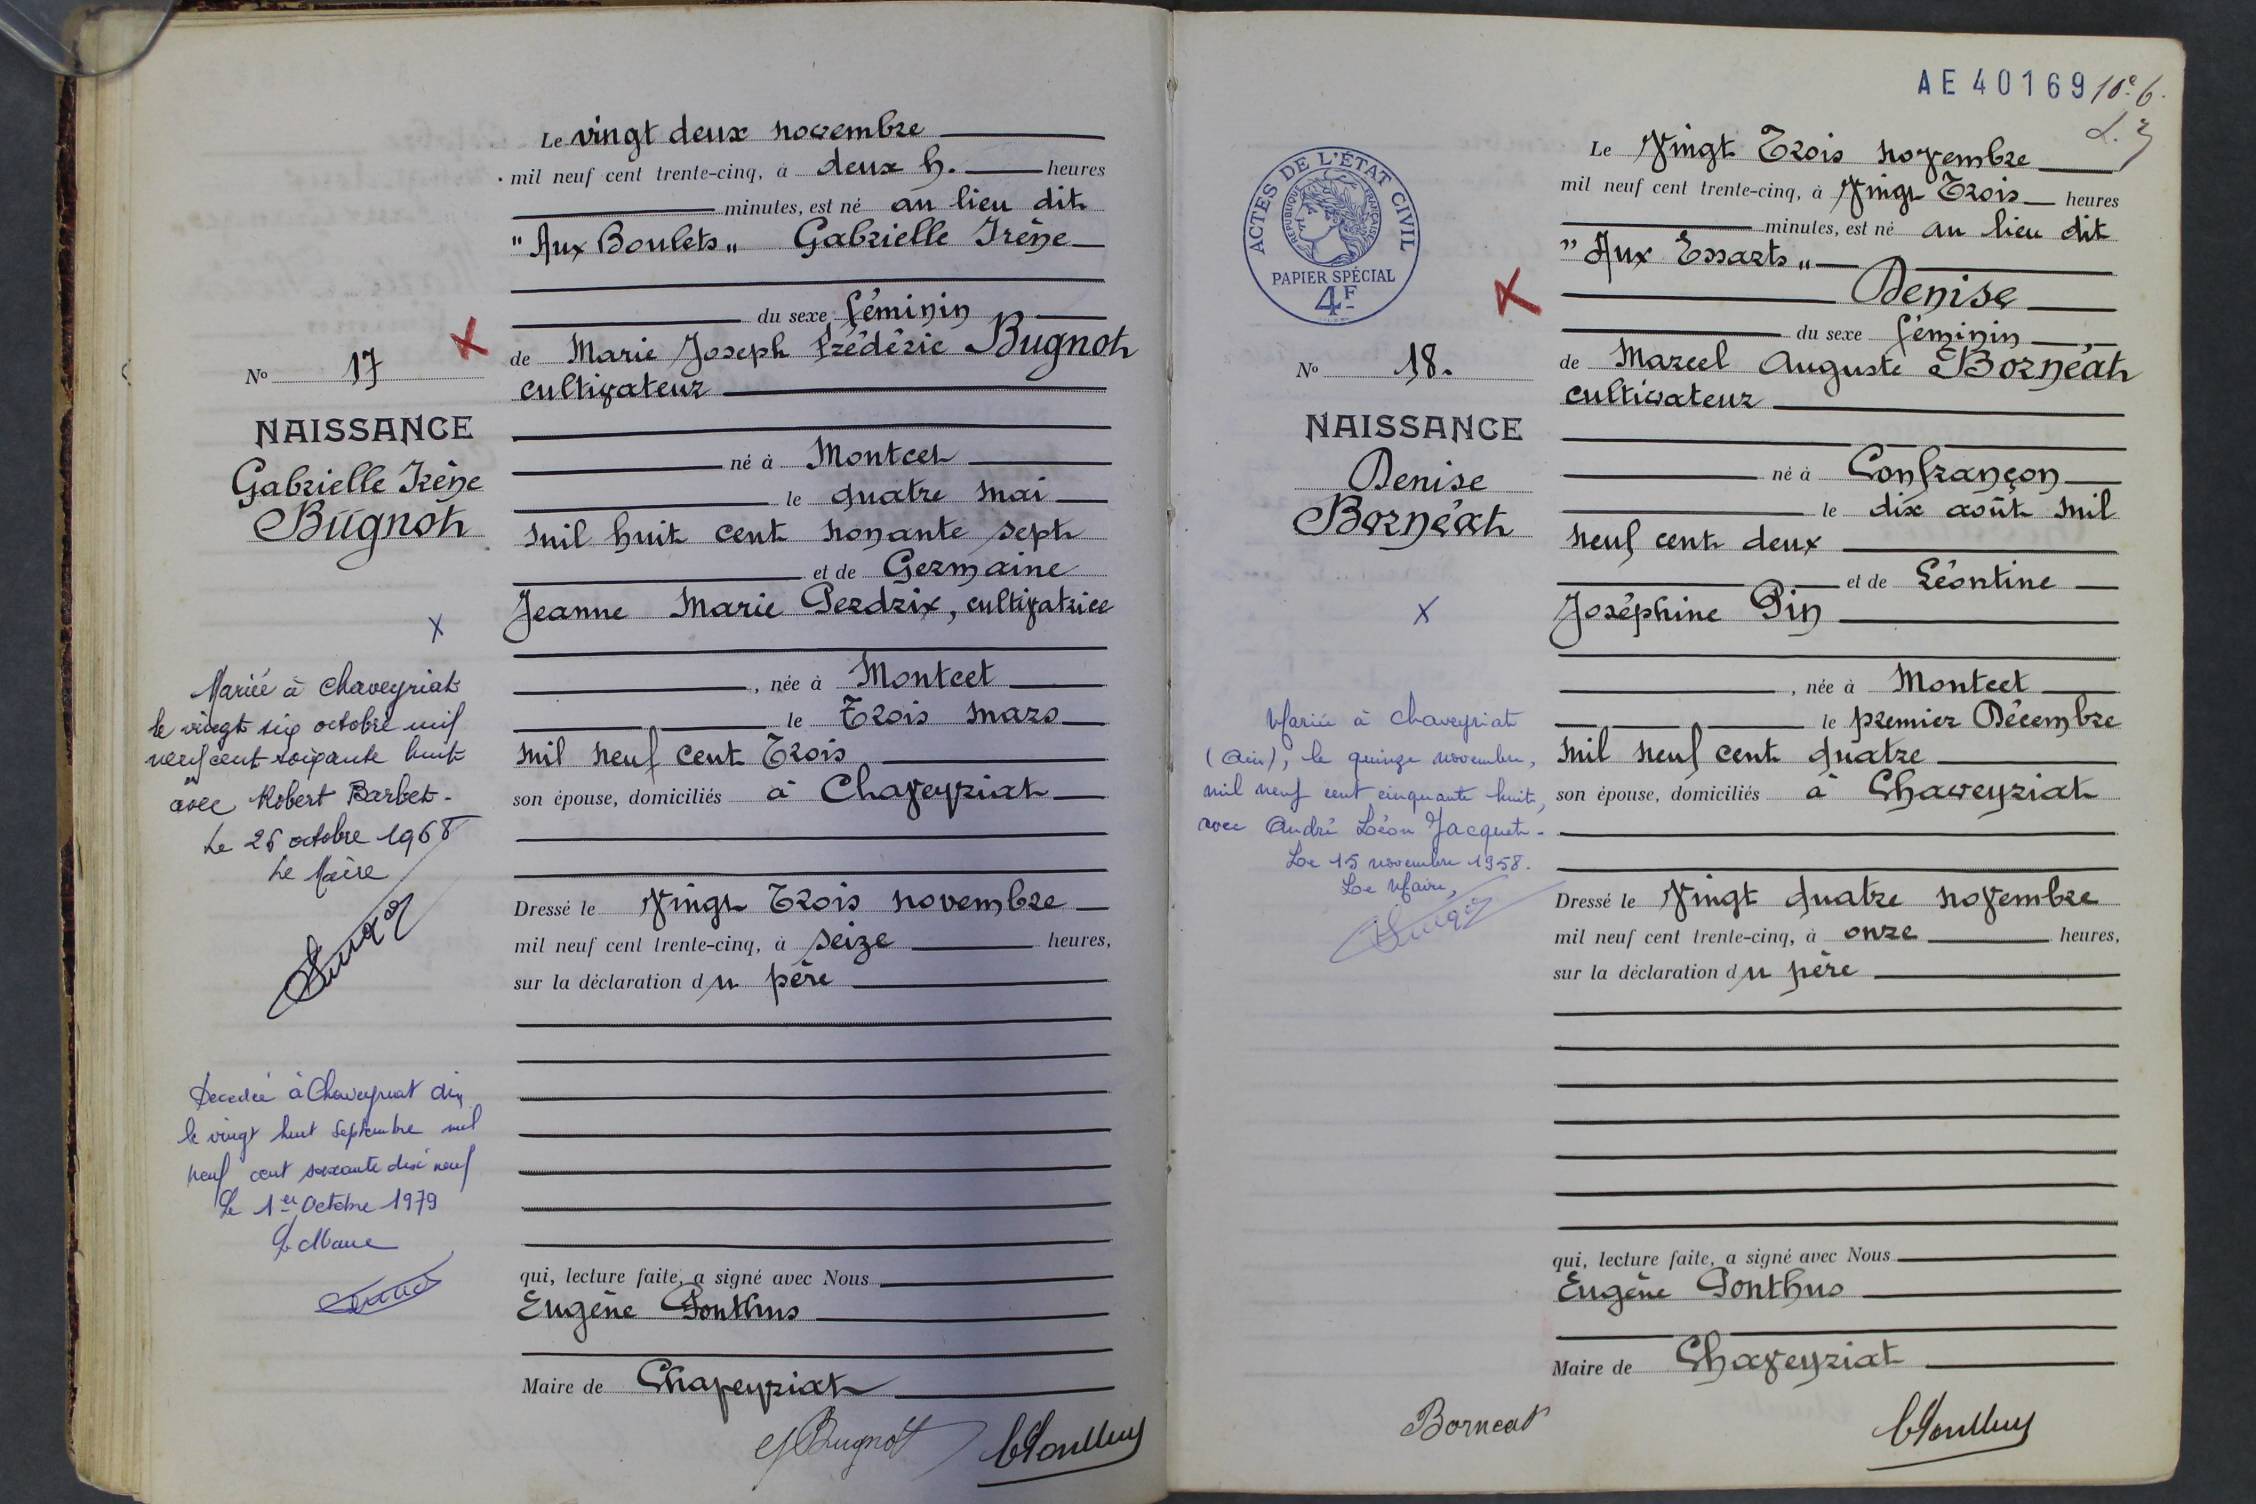 Le vingt deux novembre
mil neuf cent trente-cinq, à deux h. heures
minutes, est né au lieu dit
"Aux Boulets" Gabrielle Irène
du sexe féminin
de Marie Joseph Frédéric Bugnot
cultivateur
né à Montcet
le quatre mai
mil huit cent nonante sept
et de Germaine
Jeanne Marie Perdrix, cultivatrice
, née à Montcet
le Trois mars
mil neuf cent Trois
son épouse, domiciliés à Chaveyriat
Dressé le Vingt Trois novembre
mil neuf cent trente-cinq, à seize heures,
sur la déclaration du père
qui, lecture faite, a signé avec Nous
Eugène Ponthus
Maire de Chaveyriat
Bugnot
No 17
NAISSANCE
Gabrielle Irène
Bugnot
x
Mariée à Chaveyriat
le vingt six octobre mil
neuf cent soixante huit
avec Robert Barbet.
Le 26 octobre 1968
Le Maire
Décédée à Chaveyriat
le vingt huit Septembre mil
neuf cent soixante dix neuf
Le 1er Octobre 1979
Le Maire
AE 40169
10e 6.
ACTES DE L'ÉTAT CIVIL
RÉPUBLIQUE FRANÇAISE
PAPIER SPÉCIAL
4F
Le Vingt Trois novembre
mil neuf cent trente-cinq, à Vingt Trois heures
minutes, est né au lieu dit
"Aux Essarts"
Denise
du sexe féminin
de Marcel Auguste Bornéat
cultivateur
né à Confrançon
le dix août mil
neuf cent deux
et de Léontine
Joséphine Pin
, née à Montcet
le premier Décembre
mil neuf cent quatre
son épouse, domiciliés à Chaveyriat
Dressé le Vingt quatre novembre
mil neuf cent trente-cinq, à onze heures,
sur la déclaration du père
qui, lecture faite, a signé avec Nous
Eugène Ponthus
Maire de Chaveyriat
Borneat
No 18.
NAISSANCE
Denise
Bornéat
x
Mariée à Chaveyriat
(Ain), le quinze novembre,
mil neuf cent cinquante huit,
avec André Léon Jacquet.
Le 15 novembre 1958.
Le Maire,